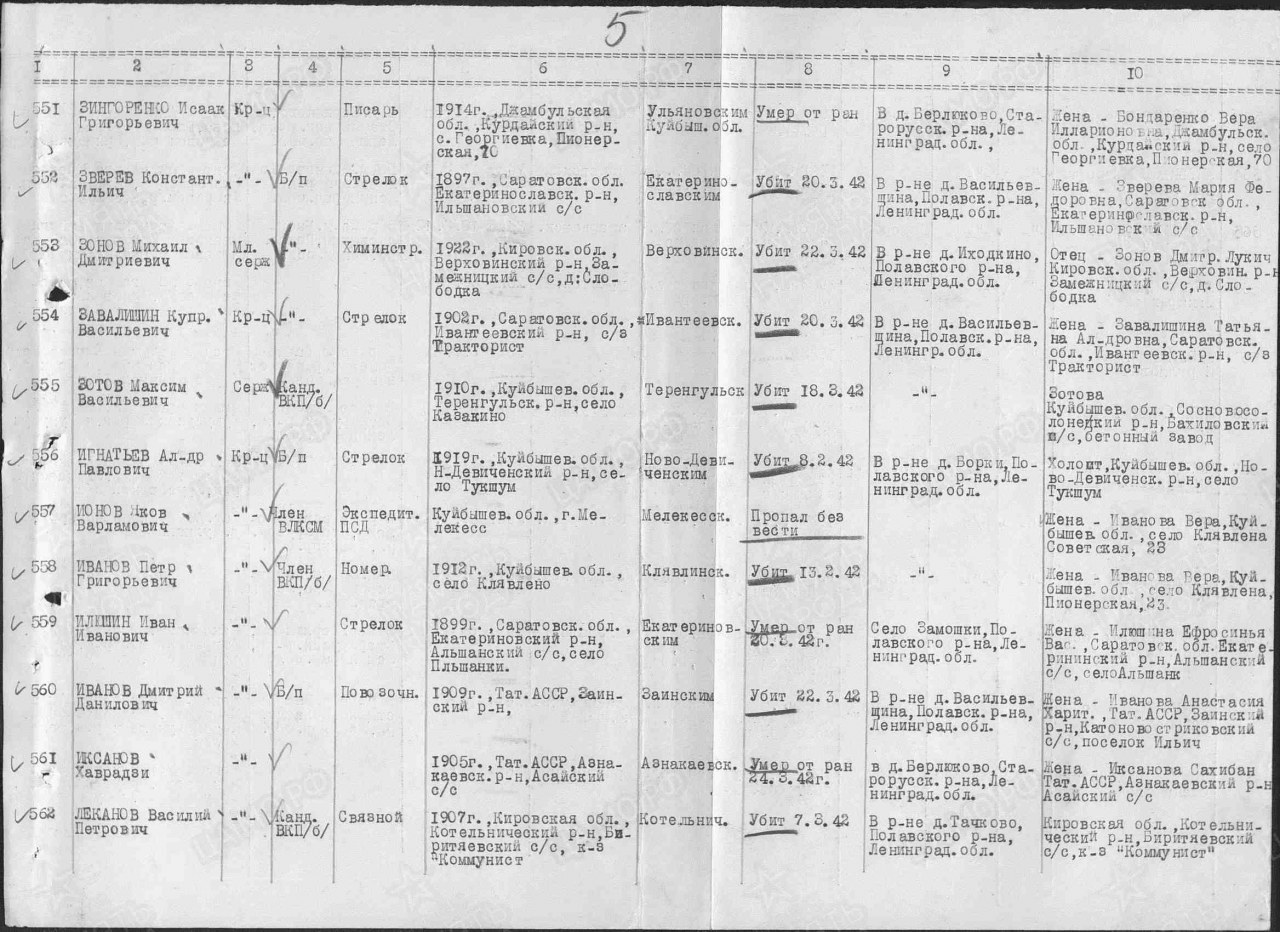 5
I 2 3 4 5 6 7 8 9 10
551 ЗИНГОРЕНКО Исаак Кр-ц Писарь 1914г.,Джамбульская Ульяновским Умер от ран В д.Берлюково,Ста- Жена - Бондаренко Вера
Григорьевич обл.,Курдайский р-н, Куйбыш.обл. рорусск.р-на,Ле- Илларионовна,Джамбульск.
с.Георгиевка,Пионер- нинград.обл., обл.,Курдайский р-н,село
ская,70 Георгиевка,Пионерская,70
552 ЗВЕРЕВ Констант. -"- Б/п Стрелок 1897г.,Саратовск.обл. Екатерино- Убит 20.3.42 В р-не д.Васильев- Жена - Зверева Мария Фе-
Ильич Екатеринославск.р-н, славским щина,Полавск.р-на, доровна,Саратовск обл.,
Ильшановский с/с Ленинград.обл. Екатеринфславск.р-н,
Ильшановский с/с
553 ЗОНОВ Михаил Мл. -"- Химинстр. 1922г.,Кировск.обл., Верховинск. Убит 22.3.42 В р-не д.Иходкино, Отец - Зонов Дмитр.Лукич
Дмитриевич серж Верховинский р-н,За- Полавского р-на, Кировск.обл.,Верховин.р-н
межницкий с/с,д:Сло- Ленинград.обл. Замежницкий с/с,д.Сло-
бодка бодка
554 ЗАВАЛИШИН Купр. Кр-ц -"- Стрелок 1902г.,Саратовск.обл., Ивантеевск. Убит 20.3.42 В р-не д.Васильев- Жена - Завалишина Татья-
Васильевич Ивантеевский р-н, с/з щина,Полавск.р-на, на Ал-дровна,Саратовск.
Тракторист Ленингр.обл. обл.,Ивантеевск.р-н, с/з
Тракторист
555 ЗОТОВ Максим Серж Канд. 1910г.,Куйбышев.обл., Теренгульск Убит 18.3.42 -"- Зотова
Васильевич ВКП/б/ Теренгульск.р-н,село Куйбышев.обл.,Сосновосо-
Казакино лонецкий р-н,Бахиловский
с/с,бетонный завод
556 ИГНАТЬЕВ Ал-др Кр-ц Б/п Стрелок 1919г.,Куйбышев.обл., Ново-Деви- Убит 8.2.42 В р-не д.Борки,По- Холост,Куйбышев.обл.,Но-
Павлович Н-Девиченский р-н,се- ченским лавского р-на,Ле- во-Девиченск.р-н,село
ло Тукшум нинград.обл. Тукшум
557 ИОНОВ Яков -"- Член Экспедит. Куйбышев.обл.,г.Ме- Мелекесск. Пропал без Жена - Иванова Вера,Куй-
Варламович ВЛКСМ ПСД лекесс вести бышев.обл.,село Клявлена
Советская, 23
558 ИВАНОВ Петр -"- Член Номер 1912г.,Куйбышев.обл., Клявлинск. Убит 13.2.42 -"- Жена - Иванова Вера,Куй-
Григорьевич ВКП/б/ село Клявлено бышев.обл.,село Клявлена,
Пионерская,23.
559 ИЛЮШИН Иван -"- Стрелок 1899г.,Саратовск.обл., Екатеринов- Умер от ран Село Замошки,По- Жена - Илюшина Ефросинья
Иванович Екатериновский р-н, ским 20.3.42г. лавского р-на,Ле- Вас.,Саратовск.обл.Екате-
Альшанский с/с,село нинград.обл. рининский р-н,Альшанский
Пльшанки. с/с,селоАльшанк
560 ИВАНОВ Дмитрий -"- Б/п Повозочн. 1909г.,Тат.АССР,Заин- Заинским Убит 22.3.42 В р-не д.Васильев- Жена - Иванова Анастасия
Данилович ский р-н, щина,Полавск.р-на, Харит.,Тат.АССР,Заинский
Ленинград.обл. р-н,Катоновостриковский
с/с,поселок Ильич
561 ИКСАНОВ -"- 1905г.,Тат.АССР,Азна- Азнакаевск. Умер от ран в д.Берлюково,Ста- Жена - Иксанова Сахибан
Хаврадзи каевск.р-н,Асайский 24.3.42г. рорусск.р-на,Ле- Тат.АССР,Азнакаевский р-н
с/с нинград.обл. Асайский с/с
562 ЛЕКАНОВ Василий -"- Канд. Связной 1907г.,Кировская обл., Котельнич. Убит 7.3.42 В р-не д.Тачково, Кировская обл.,Котельни-
Петрович ВКП/б/ Котельнический р-н,Би- Полавского р-на, ческий р-н,Биритяевский
ритяевский с/с, к-з Ленинград.обл. с/с,к-з "Коммунист"
"Коммунист